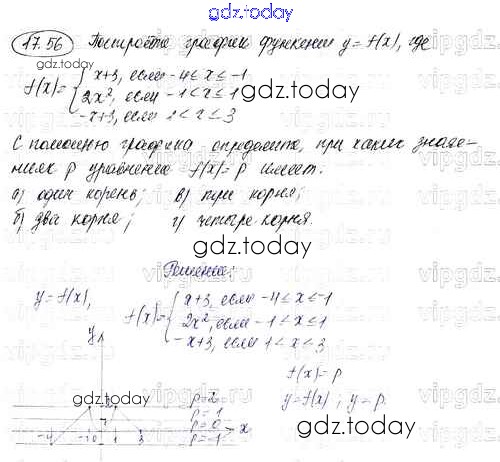 gdz.today
17.56 Постройте график функции y = f(x), где
gdz.today
f(x)= { x+3, если -4 ≤ x ≤ -1
2x², если -1 < x ≤ 1
-x+3, если 1 < x ≤ 3
С помощью графика определите, при каких значе-
ниях p уравнение f(x)=p имеет:
а) один корень; в) три корня;
б) два корня; г) четыре корня.
gdz.today
Решение:
y=f(x),
f(x)= { x+3, если -4 ≤ x ≤ -1
2x², если -1 < x ≤ 1
-x+3, если 1 < x ≤ 3
y
f(x)=p
y=f(x) ; y=p.
p=2
p=1
p=0
p=-1
-4 -1 0 1 3 x
gdz.today